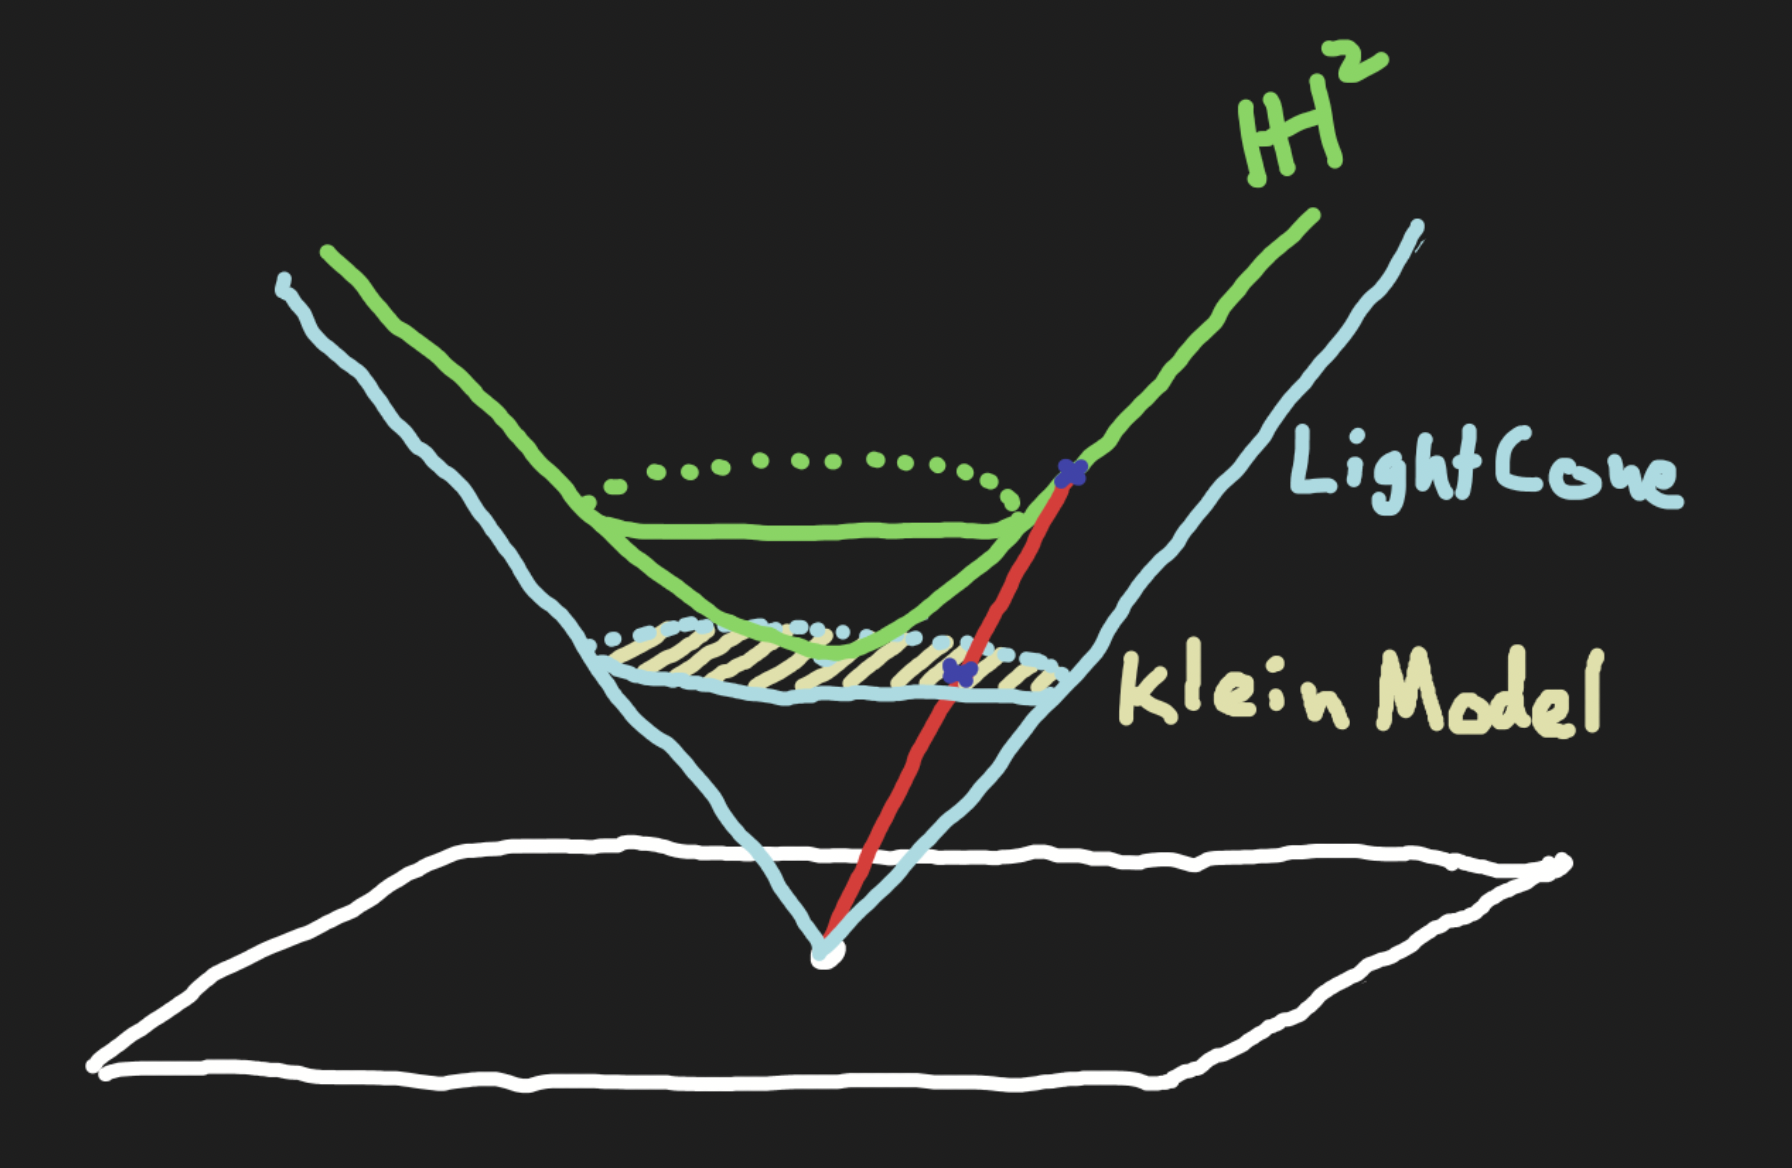 ℍ²
Light Cone
Klein Model